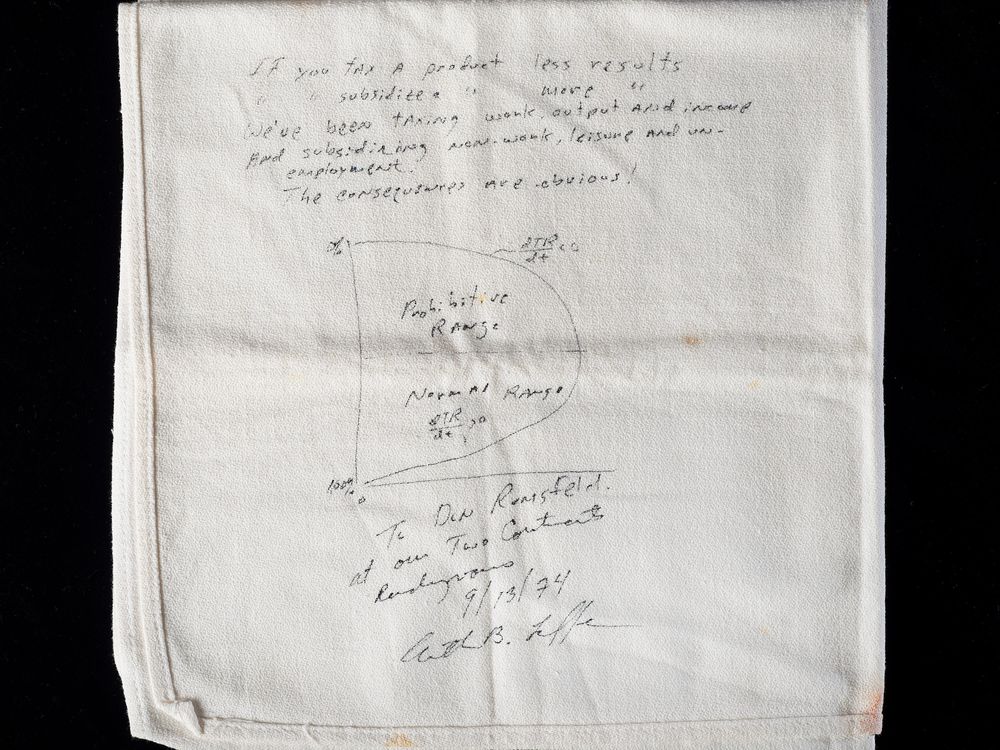 If you tax a product less results
" " subsidize a " more "
We've been taxing work, output and income
and subsidizing non-work, leisure and un-
employment.
The consequences are obvious!
%
dTR/dt <0
Prohibitive
Range
Normal Range
dTR/dt >0
100%
0
To Don Rumsfeld.
at our Two Continents
Rendezvous
9/13/74
Arthur B. Laffer